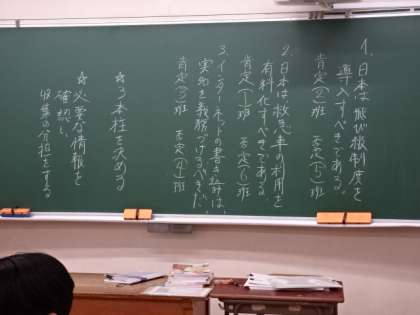 1. 日本は飛び級制度を
導入すべきである。
肯定(2)班 否定(5)班
2. 日本は救急車の利用を
有料化すべきである。
肯定(1)班 否定(6)班
3. インターネットの書き込みは、
実名を義務づけるべきだ。
肯定(3)班 否定(4)班
☆3本柱を決める
☆必要な情報を
確認し、
収集の分担をする